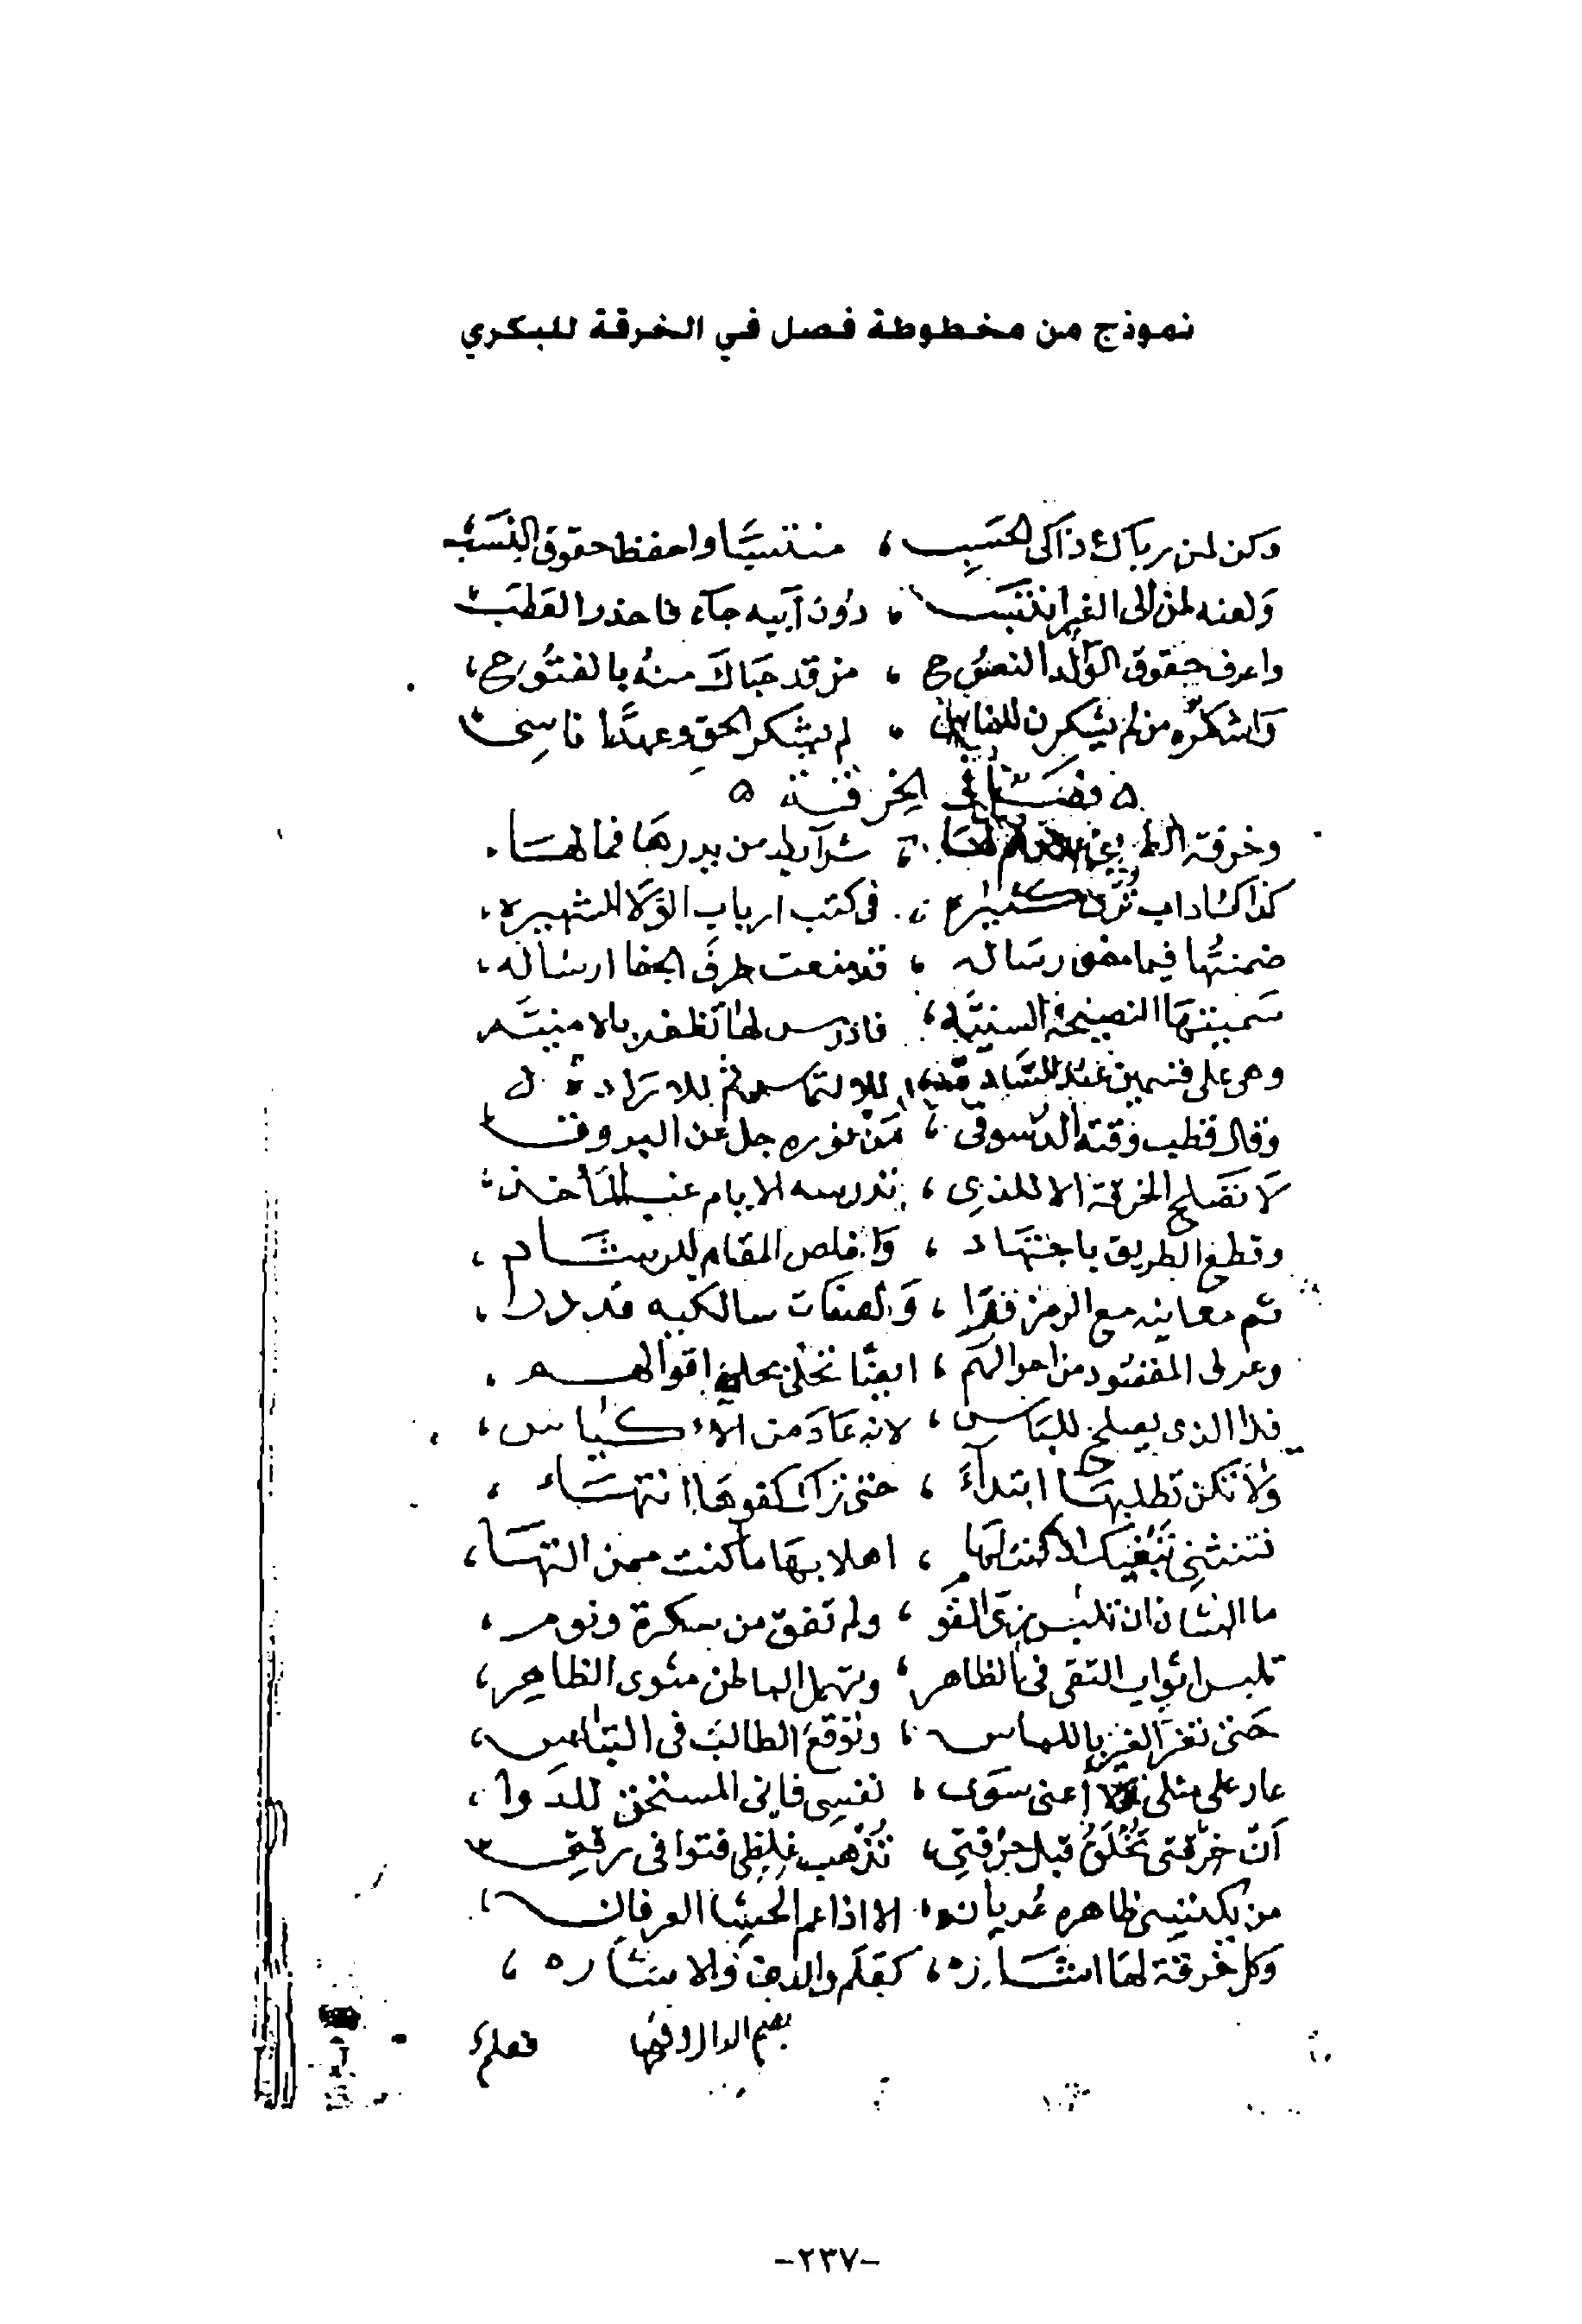 نموذج من مخطوطة فصل في الخرقة للبكري
وكن لمن رباك ذاكى الحسب ، منتسبا واحفظ حقوق النسب
ولعنه لمن الى الغير انتسب ، دون ابيه جآء فاحذر العطب
واعرف حقوق الوالد النصوح ، من قد حباك منه بالفتوح ،
واشكره من لم يشكرن للناس ، لم يشكر الحق وعهدا ناسى
فصل في الخرقة
وخرفة ، شرآيط من يدرها فما لها
كذاك اداب ترى كثيره ، في كتب ارباب الولا الشهيره ،
ضمنتها فيما مضى رساله ، قد منعت طرف الجفا ارساله ،
سميتها النصيحة السنيه ، فادرس لها تظفر بالامنيه
وهي على قسمين عند الساده ، للالتماس ثم للاراده
وقال قطب وقته الدسوقى ، من نوره جل عن البروق
لا تصلح الخرقة الا للذى ، تدرسه الايام عند المأخذ
وقطع الطريق باجتهاد ، واخلص المقام للرشاد ،
ثم معاينه مع الرمز قرا ، ولصفات سالكيه قد درا ،
وعرف المقصود من احوالهم ، ايضا تحلى بحلى اقوالهم ،
فذا الذى يصلح للباس ، لانه عاد من الاكياس ،
ولا تكن تطلبها ابتدآء ، حتى تراك كفوها انتهاء ،
اهلا بها ما كنت ممن التها ،
ما الشان ان تلبس زى القوم ، ولم تفق من سكرة ونوم ،
تلبس اثواب التقى في الظاهر ، وتهمل الباطن مثوى الظاهر ،
حتى تغر الغير باللباس ، وتوقع الطالب في التباس ،
عار على مثلى اعنى سوى ، نفسى فانى المستحق للدوا ،
ان خرقتى تخلق قبل حرقتى ، تذهب غلظى فتوافى رقتى
من يكتسى ظاهره عريان ، الا اذا عم الحشا العرفان ،
وكل خرقة لها اشاره ، كعلم والدف والاشاره ،
بضم الدال وفتحها فعلم
-٢٣٧-